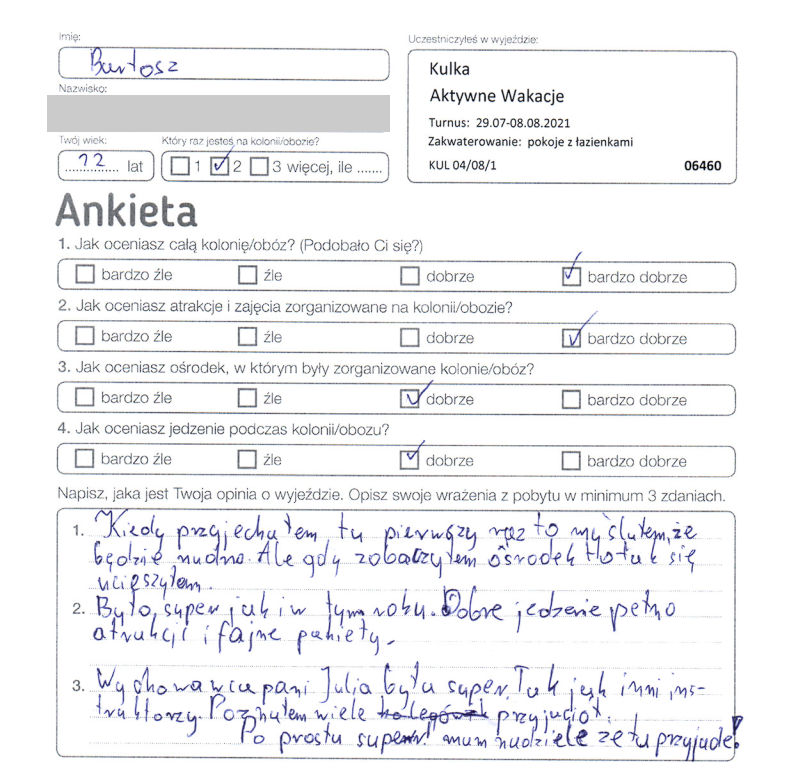 Imię:
Bartosz
Nazwisko:
Twój wiek:
12 lat
Który raz jesteś na kolonii/obozie?
1 2 3 więcej, ile .......
Uczestniczyłeś w wyjeździe:
Kulka
Aktywne Wakacje
Turnus: 29.07-08.08.2021
Zakwaterowanie: pokoje z łazienkami
KUL 04/08/1 06460
Ankieta
1. Jak oceniasz całą kolonię/obóz? (Podobało Ci się?)
bardzo źle źle dobrze bardzo dobrze
2. Jak oceniasz atrakcje i zajęcia zorganizowane na kolonii/obozie?
bardzo źle źle dobrze bardzo dobrze
3. Jak oceniasz ośrodek, w którym były zorganizowane kolonie/obóz?
bardzo źle źle dobrze bardzo dobrze
4. Jak oceniasz jedzenie podczas kolonii/obozu?
bardzo źle źle dobrze bardzo dobrze
Napisz, jaka jest Twoja opinia o wyjeździe. Opisz swoje wrażenia z pobytu w minimum 3 zdaniach.
1. Kiedy przyjechałem tu pierwszy raz to myślałem, że
będzie nudno. Ale gdy zobaczyłem ośrodek to tak się
ucieszyłem.
2. Było super jak i w tym roku. Dobre jedzenie pełno
atrakcji i fajne pakiety.
3. Wychowawca pani Julia była super. Tak jak inni ins-
truktorzy. Poznałem wiele kolegów przyjaciół.
Po prostu super! mam nadzieje że tu przyjade!